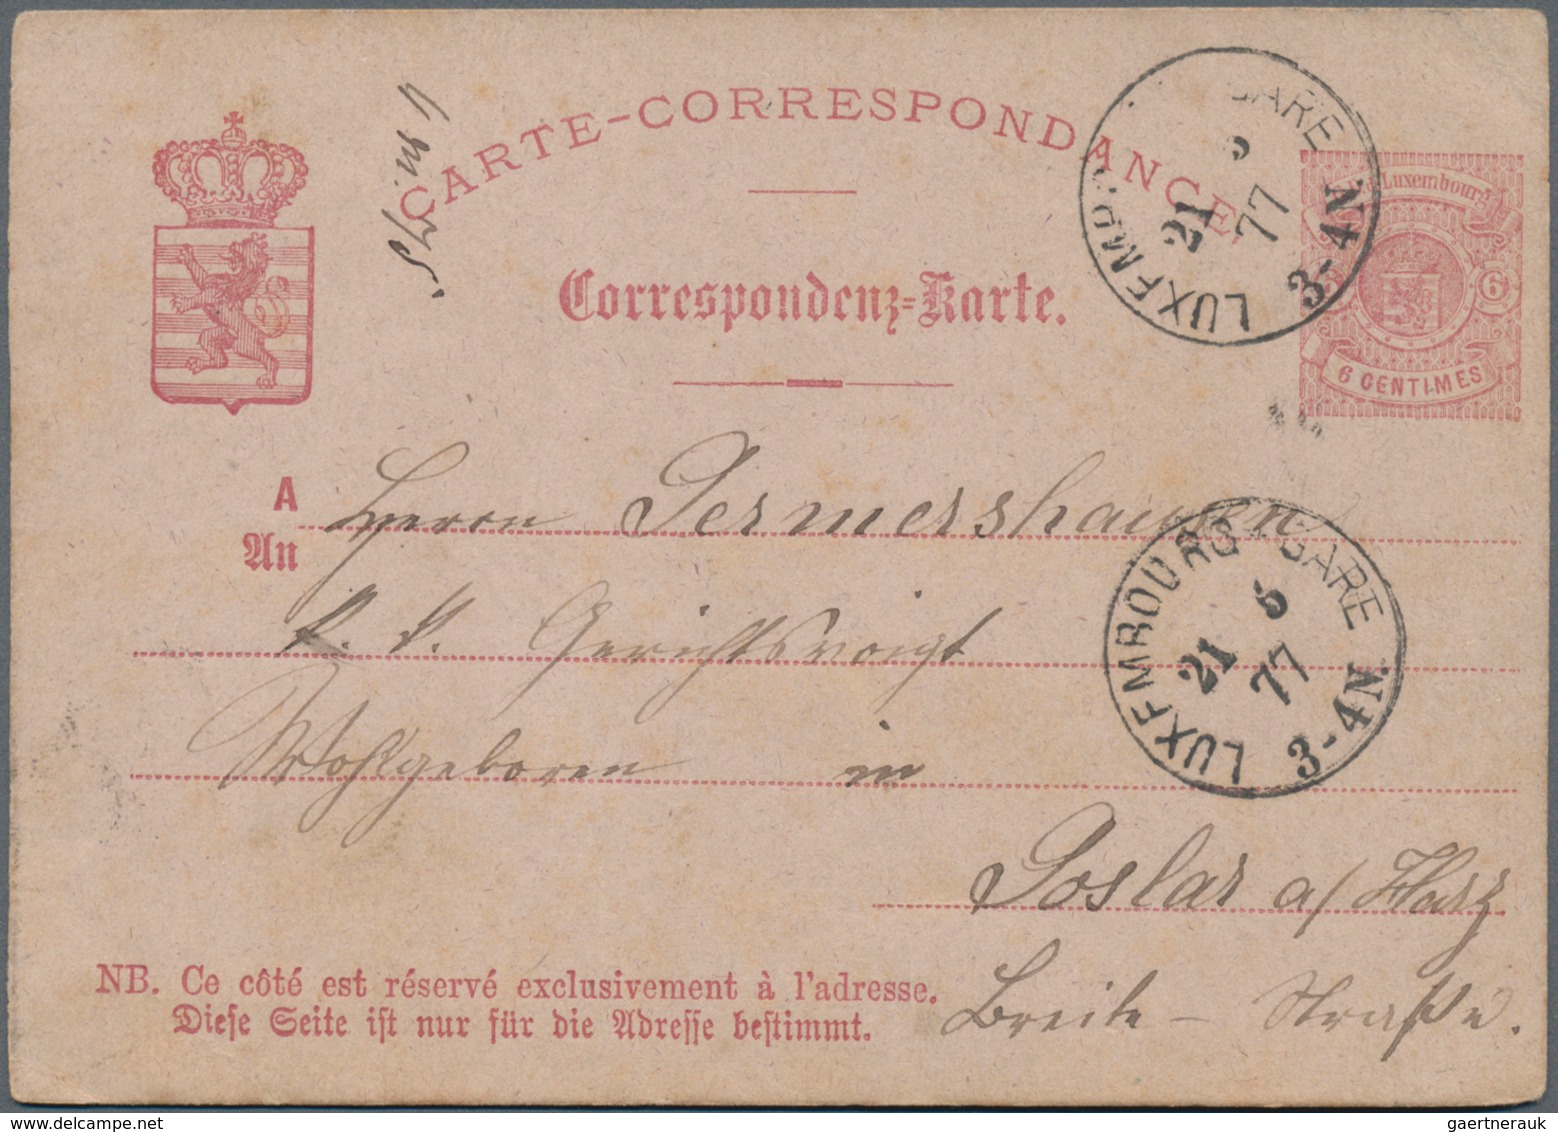 CARTE-CORRESPONDANCE,
Correspondenz=Karte.
Luxembourg
6
6 CENTIMES
GARE
21
77
3-4N.
A
An
Herrn Germershausen
Gerichtsvoigt
Wohlgeboren in
Goslar a/Harz
Breite - Straße.
LUXEMBOURG GARE
21 5
77
3-4N.
NB. Ce côté est réservé exclusivement à l'adresse.
Diese Seite ist nur für die Adresse bestimmt.
gaertnerauk
delcampe.net